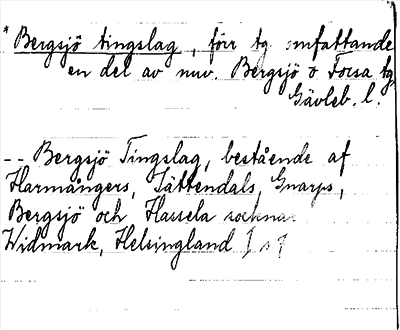 * Bergsjö tingslag, förr tg omfattande
en del av nuv. Bergsjö o Forsa tg
Gävleb. l.
-- Bergsjö Tingslag, bestående af
Harmångers, Jättendals, Gnarps,
Bergsjö och Hassela socknar
Widmark, Helsingland I s